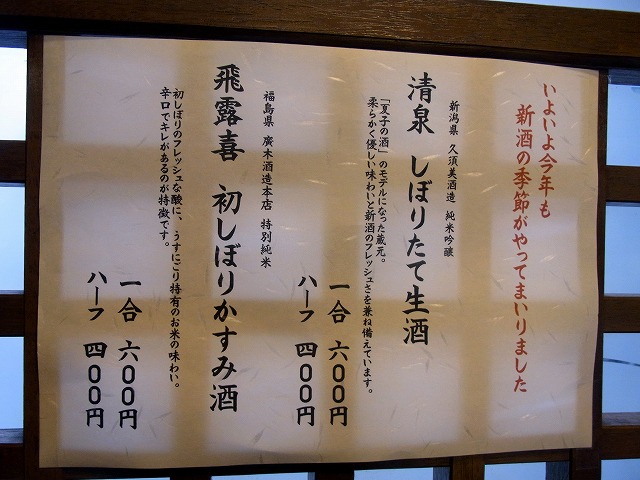 いよいよ今年も
新酒の季節がやってまいりました
新潟県 久須美酒造 純米吟醸
清泉 しぼりたて生酒
「夏子の酒」のモデルになった蔵元。
柔らかく優しい味わいと新酒のフレッシュさを兼ね備えています。
一合 六〇〇円
ハーフ 四〇〇円
福島県 廣木酒造本店 特別純米
飛露喜 初しぼりかすみ酒
初しぼりのフレッシュな酸に、うすにごり特有のお米の味わい。
辛口でキレがあるのが特徴です。
一合 六〇〇円
ハーフ 四〇〇円